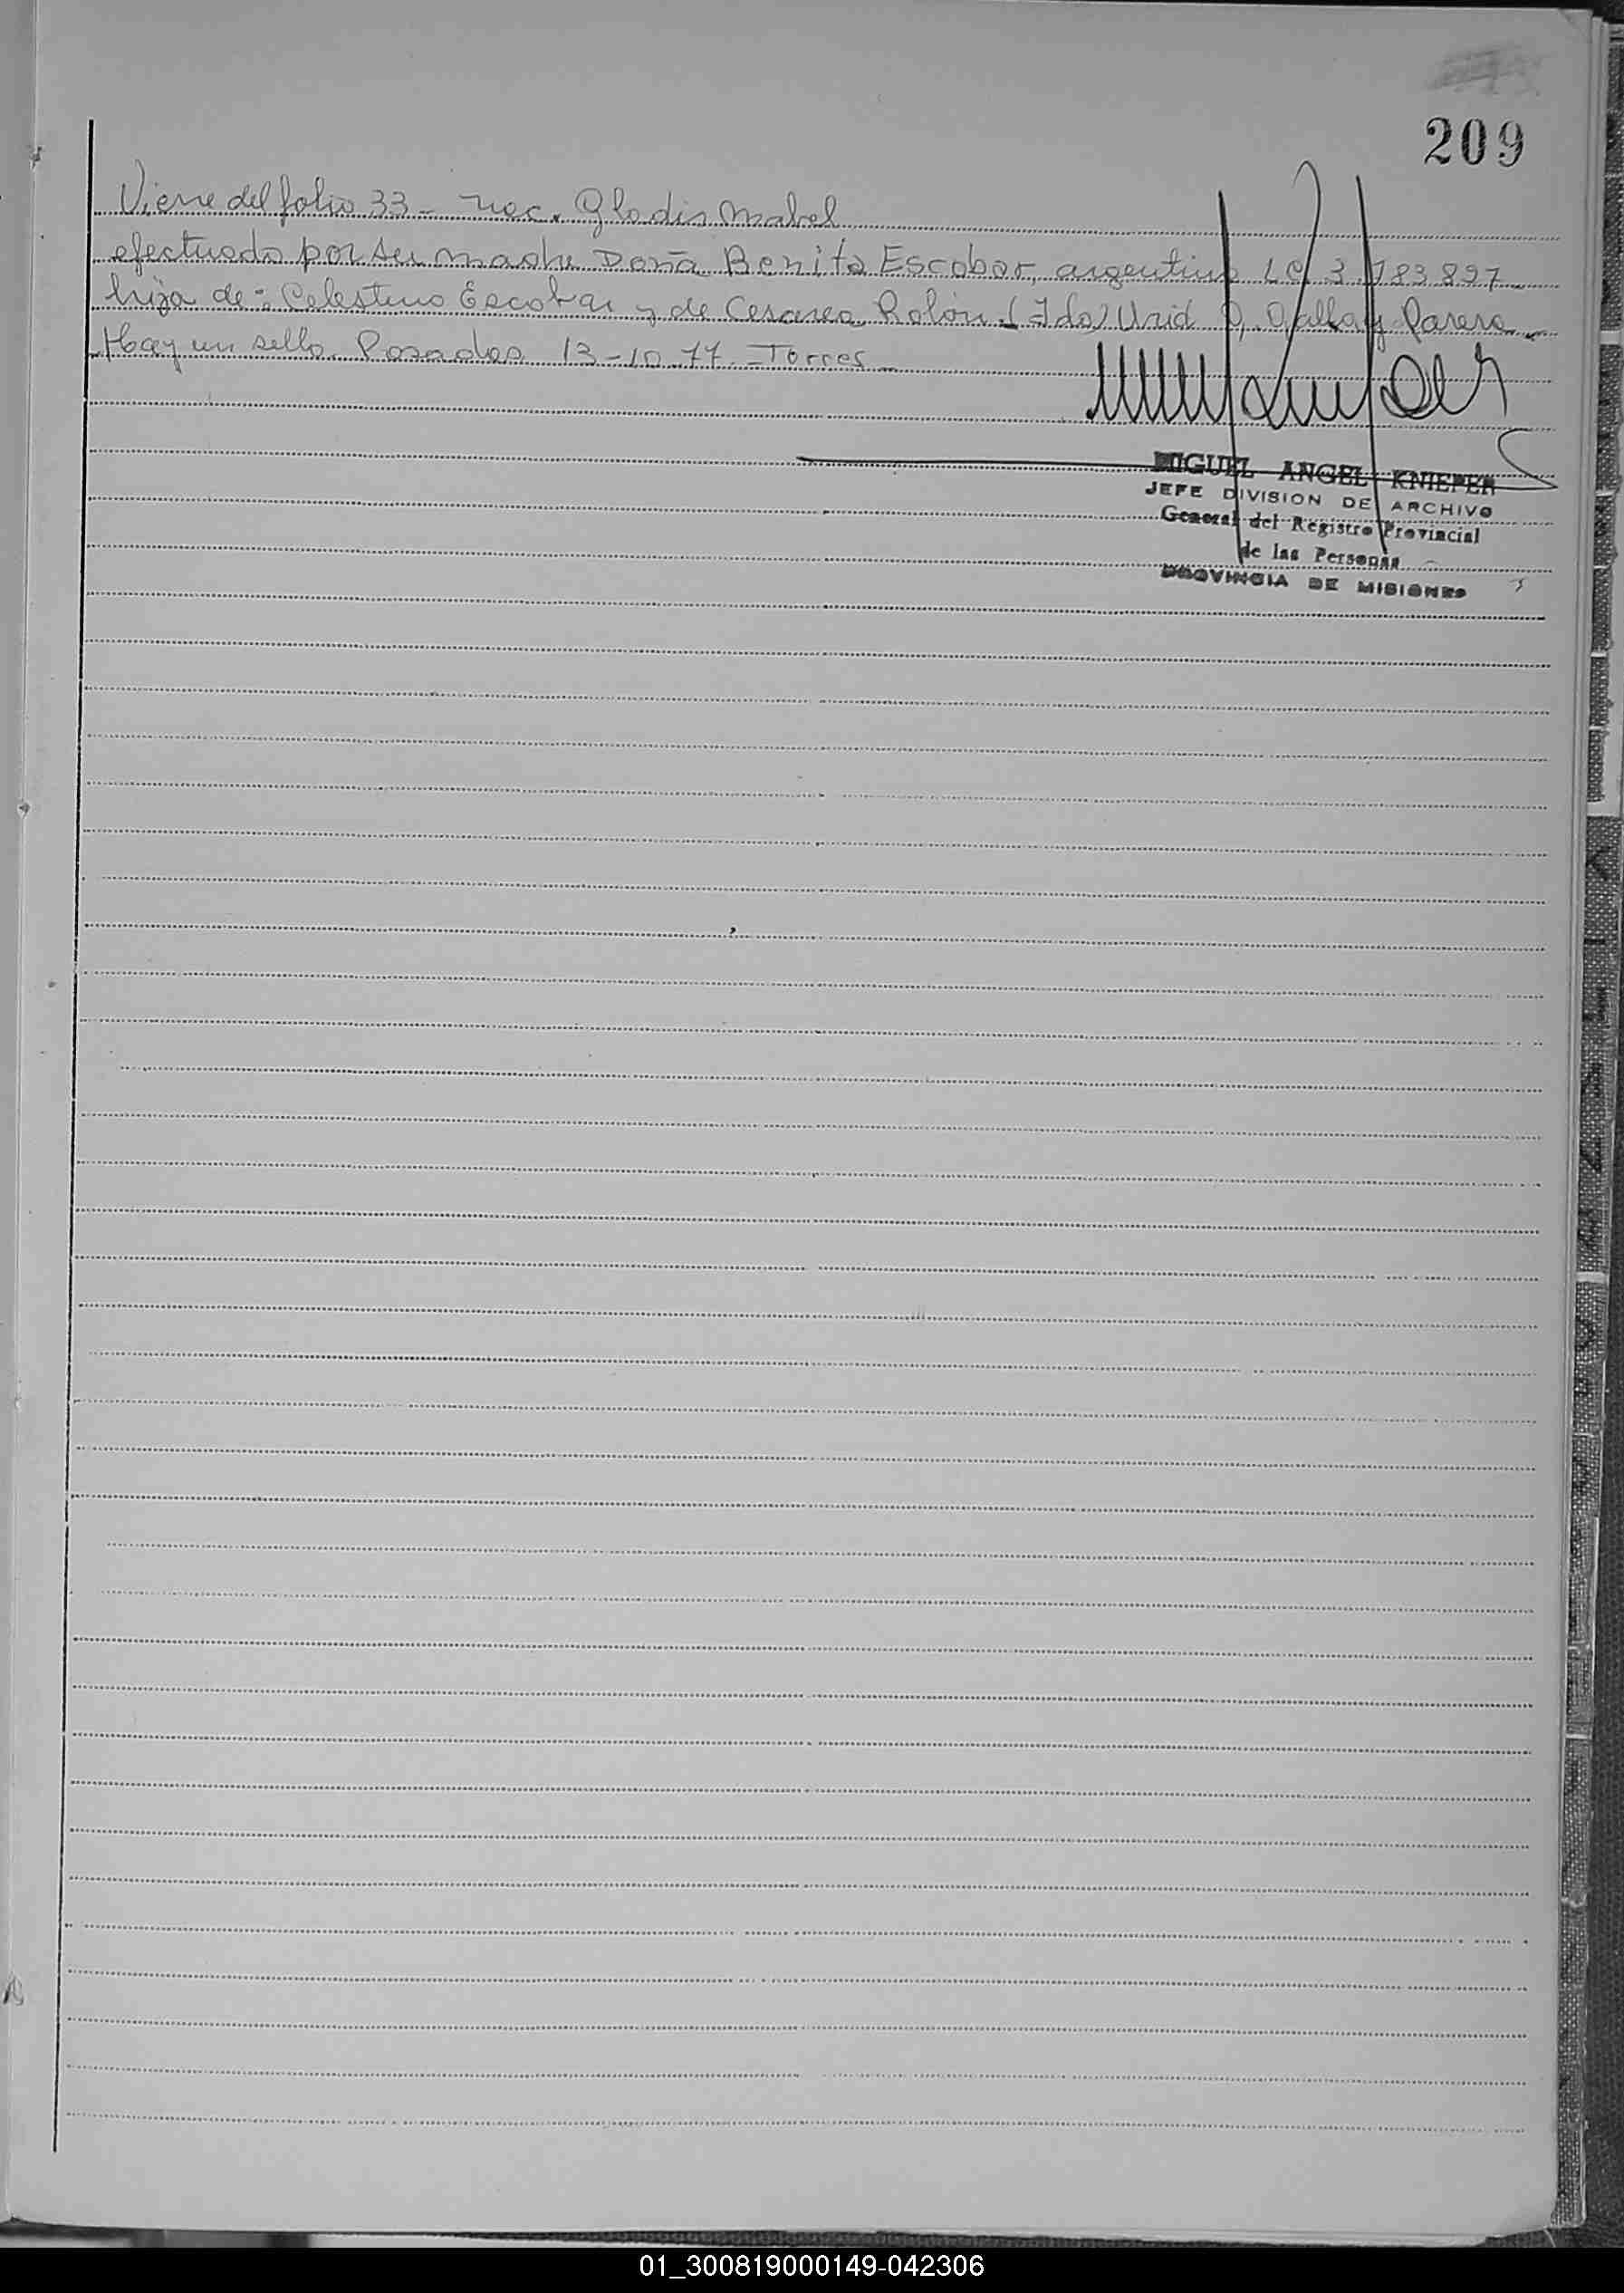 209
Viene del folio 33 - rec. Gladis Mabel
efectuado por su madre Doña Benita Escobar, argentina L.C. 3.783.897
hija de: Celestino Escobar y de Cesarea Rolón. (Fdo) Urid
Hay un sello. Posadas 13-10-77. Torres
MIGUEL ANGEL KNIEPER
JEFE DIVISION DE ARCHIVO
General del Registro Provincial
de las Personas
PROVINCIA DE MISIONES
01_300819000149-042306